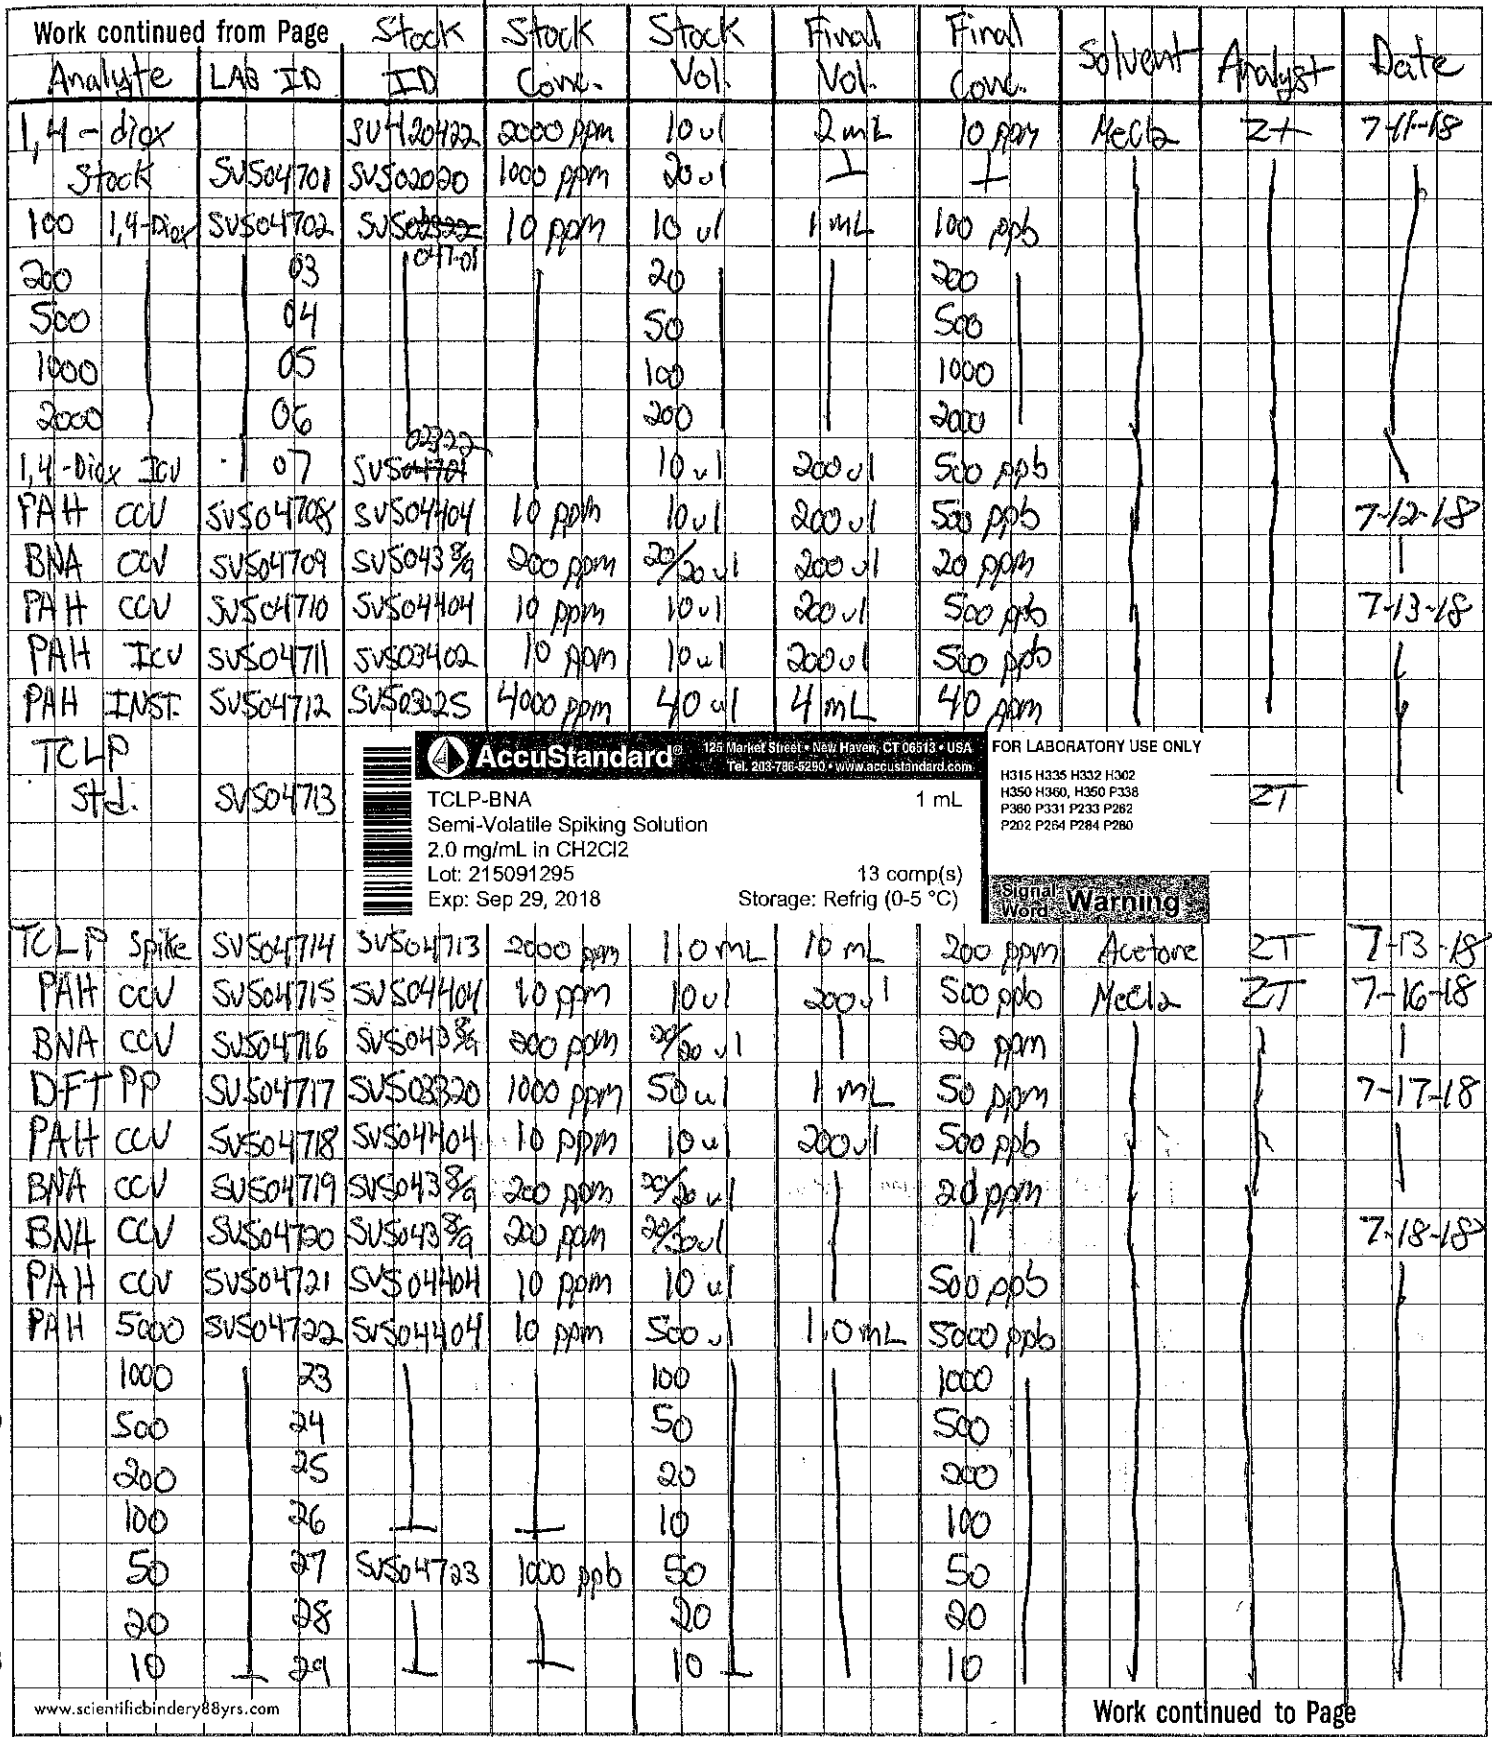 Work continued from Page Stock Stock Stock Final Final Solvent Analyst Date
Analyte LAB ID ID Conc. Vol. Vol. Conc.
1,4-diox SV420422 2000 ppm 10 ul 2 mL 10 ppm MeCl2 ZT 7-11-18
Stock SVS04701 SVS02020 1000 ppm 20 ul
100 1,4-Diox SVS04702 SVS 047-01 10 ppm 10 ul 1 mL 100 ppb
200 03 20 200
500 04 50 500
1000 05 100 1000
2000 06 200 2000
1,4-Diox ICV 07 SVS 02322 10 ul 200 ul 500 ppb
PAH CCV SVS04708 SVS04404 10 ppm 10 ul 200 ul 500 ppb 7-12-18
BNA CCV SVS04709 SVS043 8/9 200 ppm 20/20 ul 200 ul 20 ppm
PAH CCV SVS04710 SVS04404 10 ppm 10 ul 200 ul 500 ppb 7-13-18
PAH ICV SVS04711 SVS03402 10 ppm 10 ul 200 ul 500 ppb
PAH INST. SVS04712 SVS03025 4000 ppm 40 ul 4 mL 40 ppm
TCLP
Std. SVS04713 ZT
AccuStandard® 125 Market Street • New Haven, CT 06513 • USA
Tel. 203-786-5290 • www.accustandard.com
TCLP-BNA 1 mL
Semi-Volatile Spiking Solution
2.0 mg/mL in CH2Cl2
Lot: 215091295 13 comp(s)
Exp: Sep 29, 2018 Storage: Refrig (0-5 °C)
FOR LABORATORY USE ONLY
H315 H335 H332 H302
H350 H360, H350 P338
P360 P331 P233 P262
P202 P264 P284 P280
Signal Word Warning
TCLP Spike SVS04714 SVS04713 2000 ppm 1.0 mL 10 mL 200 ppm Acetone ZT 7-13-18
PAH CCV SVS04715 SVS04404 10 ppm 10 ul 200 ul 500 ppb MeCl2 ZT 7-16-18
BNA CCV SVS04716 SVS043 8/9 200 ppm 20/20 ul 20 ppm
DFTPP SVS04717 SVS03320 1000 ppm 50 ul 1 mL 50 ppm 7-17-18
PAH CCV SVS04718 SVS04404 10 ppm 10 ul 200 ul 500 ppb
BNA CCV SVS04719 SVS043 8/9 200 ppm 20/20 ul 20 ppm
BNA CCV SVS04720 SVS043 8/9 200 ppm 20/20 ul 7-18-18
PAH CCV SVS04721 SVS04404 10 ppm 10 ul 500 ppb
PAH 5000 SVS04722 SVS04404 10 ppm 500 ul 1.0 mL 5000 ppb
1000 23 100 1000
500 24 50 500
200 25 20 200
100 26 10 100
50 27 SVS04723 1000 ppb 50 50
20 28 20 20
10 29 10 10
www.scientificbindery88yrs.com Work continued to Page